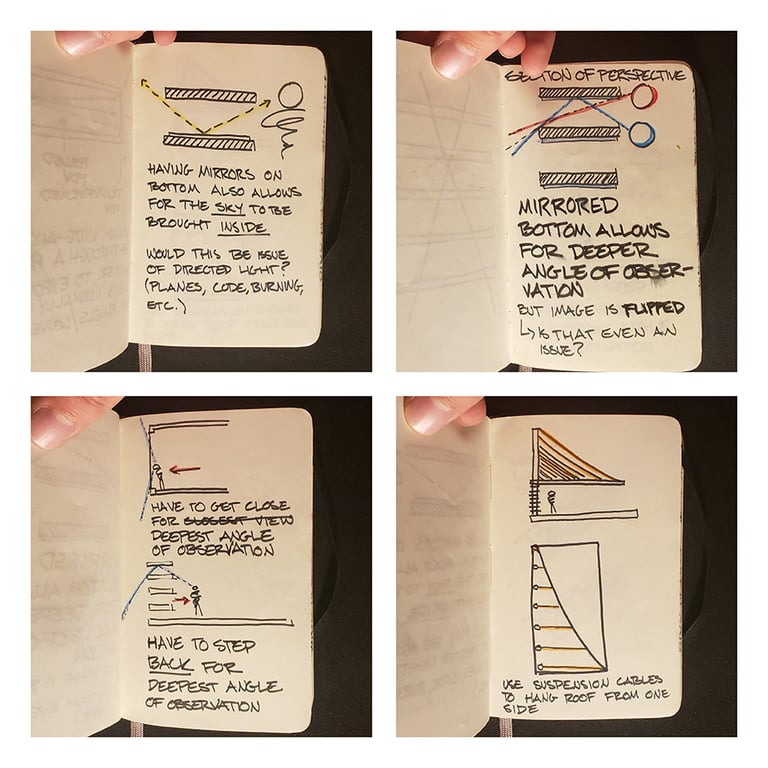 HAVING MIRRORS ON
BOTTOM ALSO ALLOWS
FOR THE SKY TO BE
BROUGHT INSIDE
WOULD THIS BE ISSUE
OF DIRECTED LIGHT?
(PLANES, CODE, BURNING,
ETC.)
SECTION OF PERSPECTIVE
MIRRORED
BOTTOM ALLOWS
FOR DEEPER
ANGLE OF OBSER-
VATION
BUT IMAGE IS FLIPPED
↳ IS THAT EVEN AN
ISSUE?
HAVE TO GET CLOSE
FOR CLOSEST VIEW
DEEPEST ANGLE
OF OBSERVATION
HAVE TO STEP
BACK FOR
DEEPEST ANGLE
OF OBSERVATION
USE SUSPENSION CABLES
TO HANG ROOF FROM ONE
SIDE